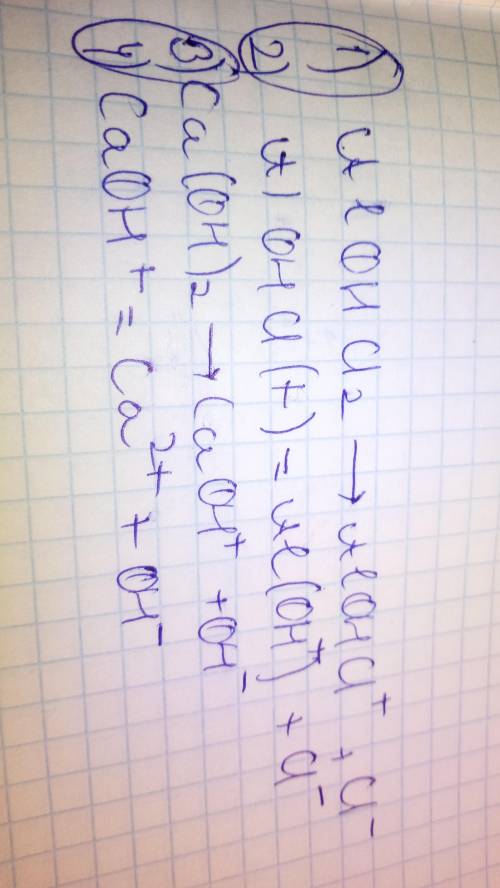 1) AlOHCl₂ → AlOHCl⁺ + Cl⁻
2) AlOHCl(+) = Al(OH⁺) + Cl⁻
3) Ca(OH)₂ → CaOH⁺ + OH⁻
4) CaOH⁺ = Ca²⁺ + OH⁻